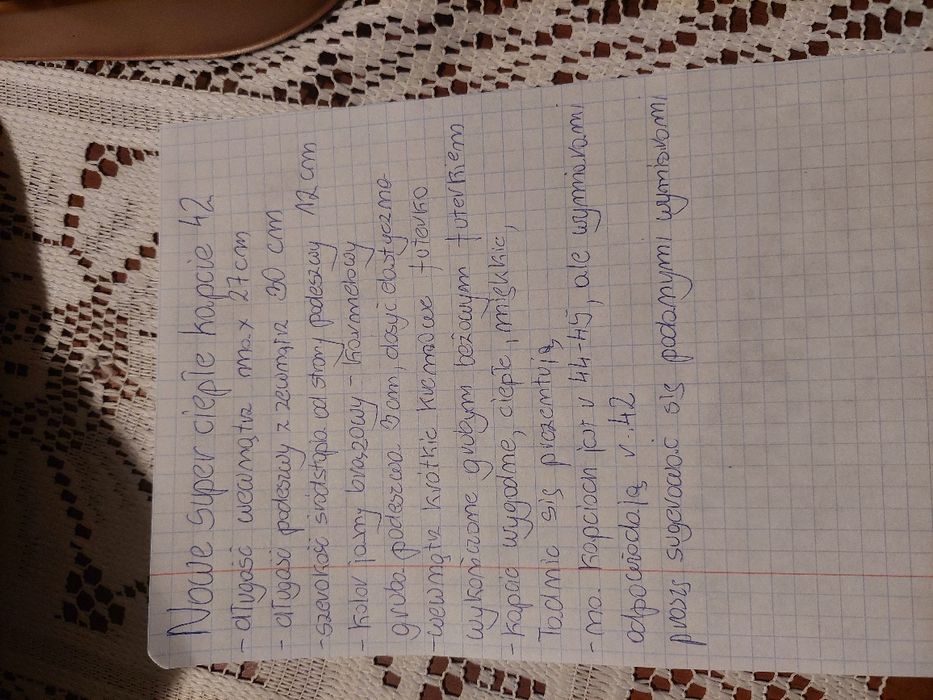 Nowe super ciepłe kapcie 42
- długość wewnątrz max 27cm
- długość podeszwy z zewnątrz 30 cm
- szerokość śródstopia od strony podeszwy 12cm
- kolor jasny brązowy - karmelowy
gruba podeszwa 3cm, dosyć elastyczna
- wewnątrz krótkie kremowe futerko
wykończone grubym beżowym futerkiem
- kapcie wygodne, ciepłe, miękkie,
ładnie się prezentują
- na kapciach jest r 44-45, ale wymiarami
odpowiadają r. 42
proszę sugerować się podanymi wymiarami